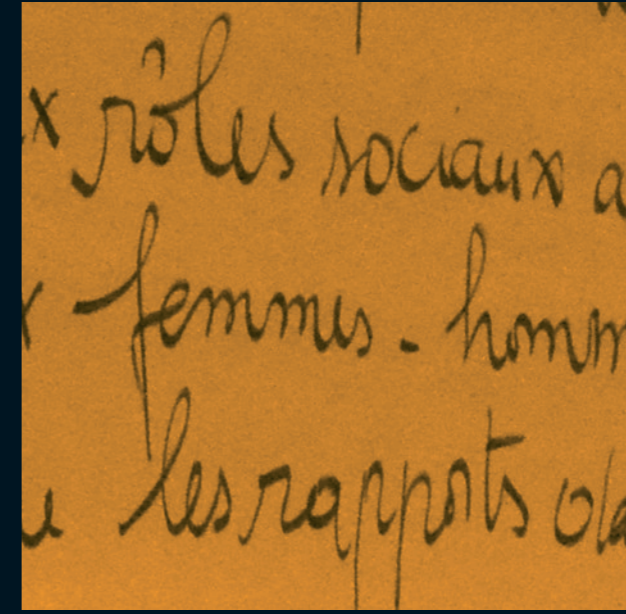 x rôles sociaux a
x femmes - homm
les rapports da